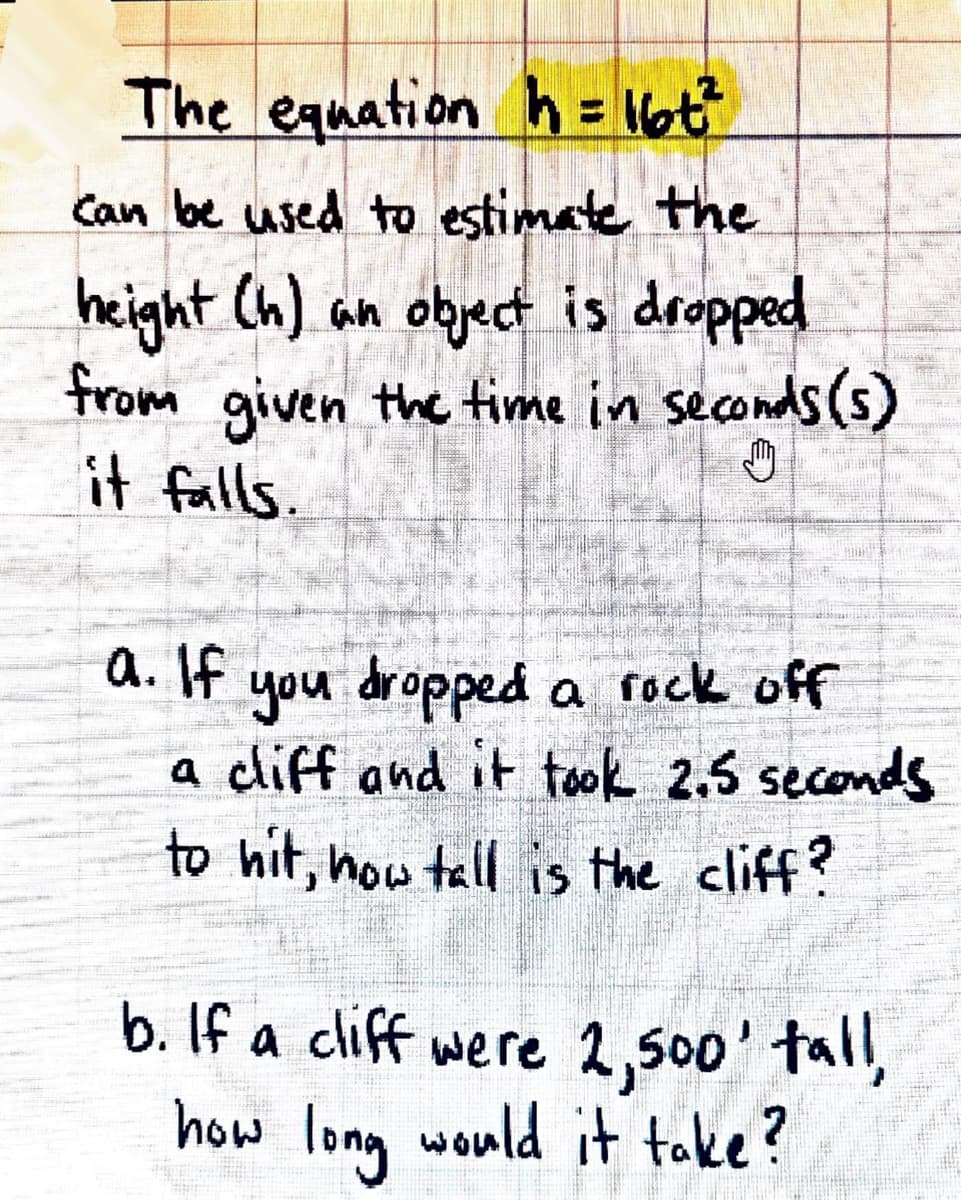 The equation h = 16t²
can be used to estimate the
height (h) an object is dropped
from given the time in seconds (s)
it falls.
a. If you dropped a rock off
a cliff and it took 2.5 seconds
to hit, how tall is the cliff?
b. If a cliff were 2,500' tall,
how long would it take?